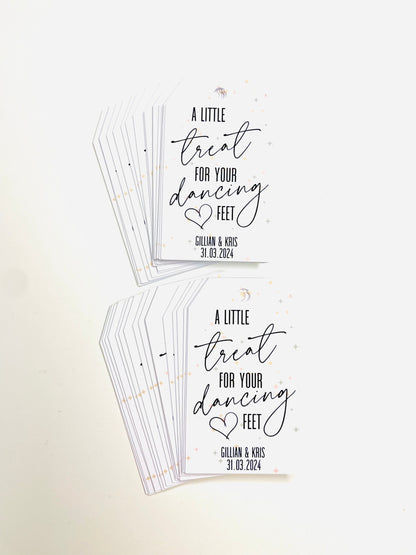 A LITTLE
treat
FOR YOUR
dancing
FEET
GILLIAN & KRIS
31.03.2024
A LITTLE
treat
FOR YOUR
dancing
FEET
GILLIAN & KRIS
31.03.2024